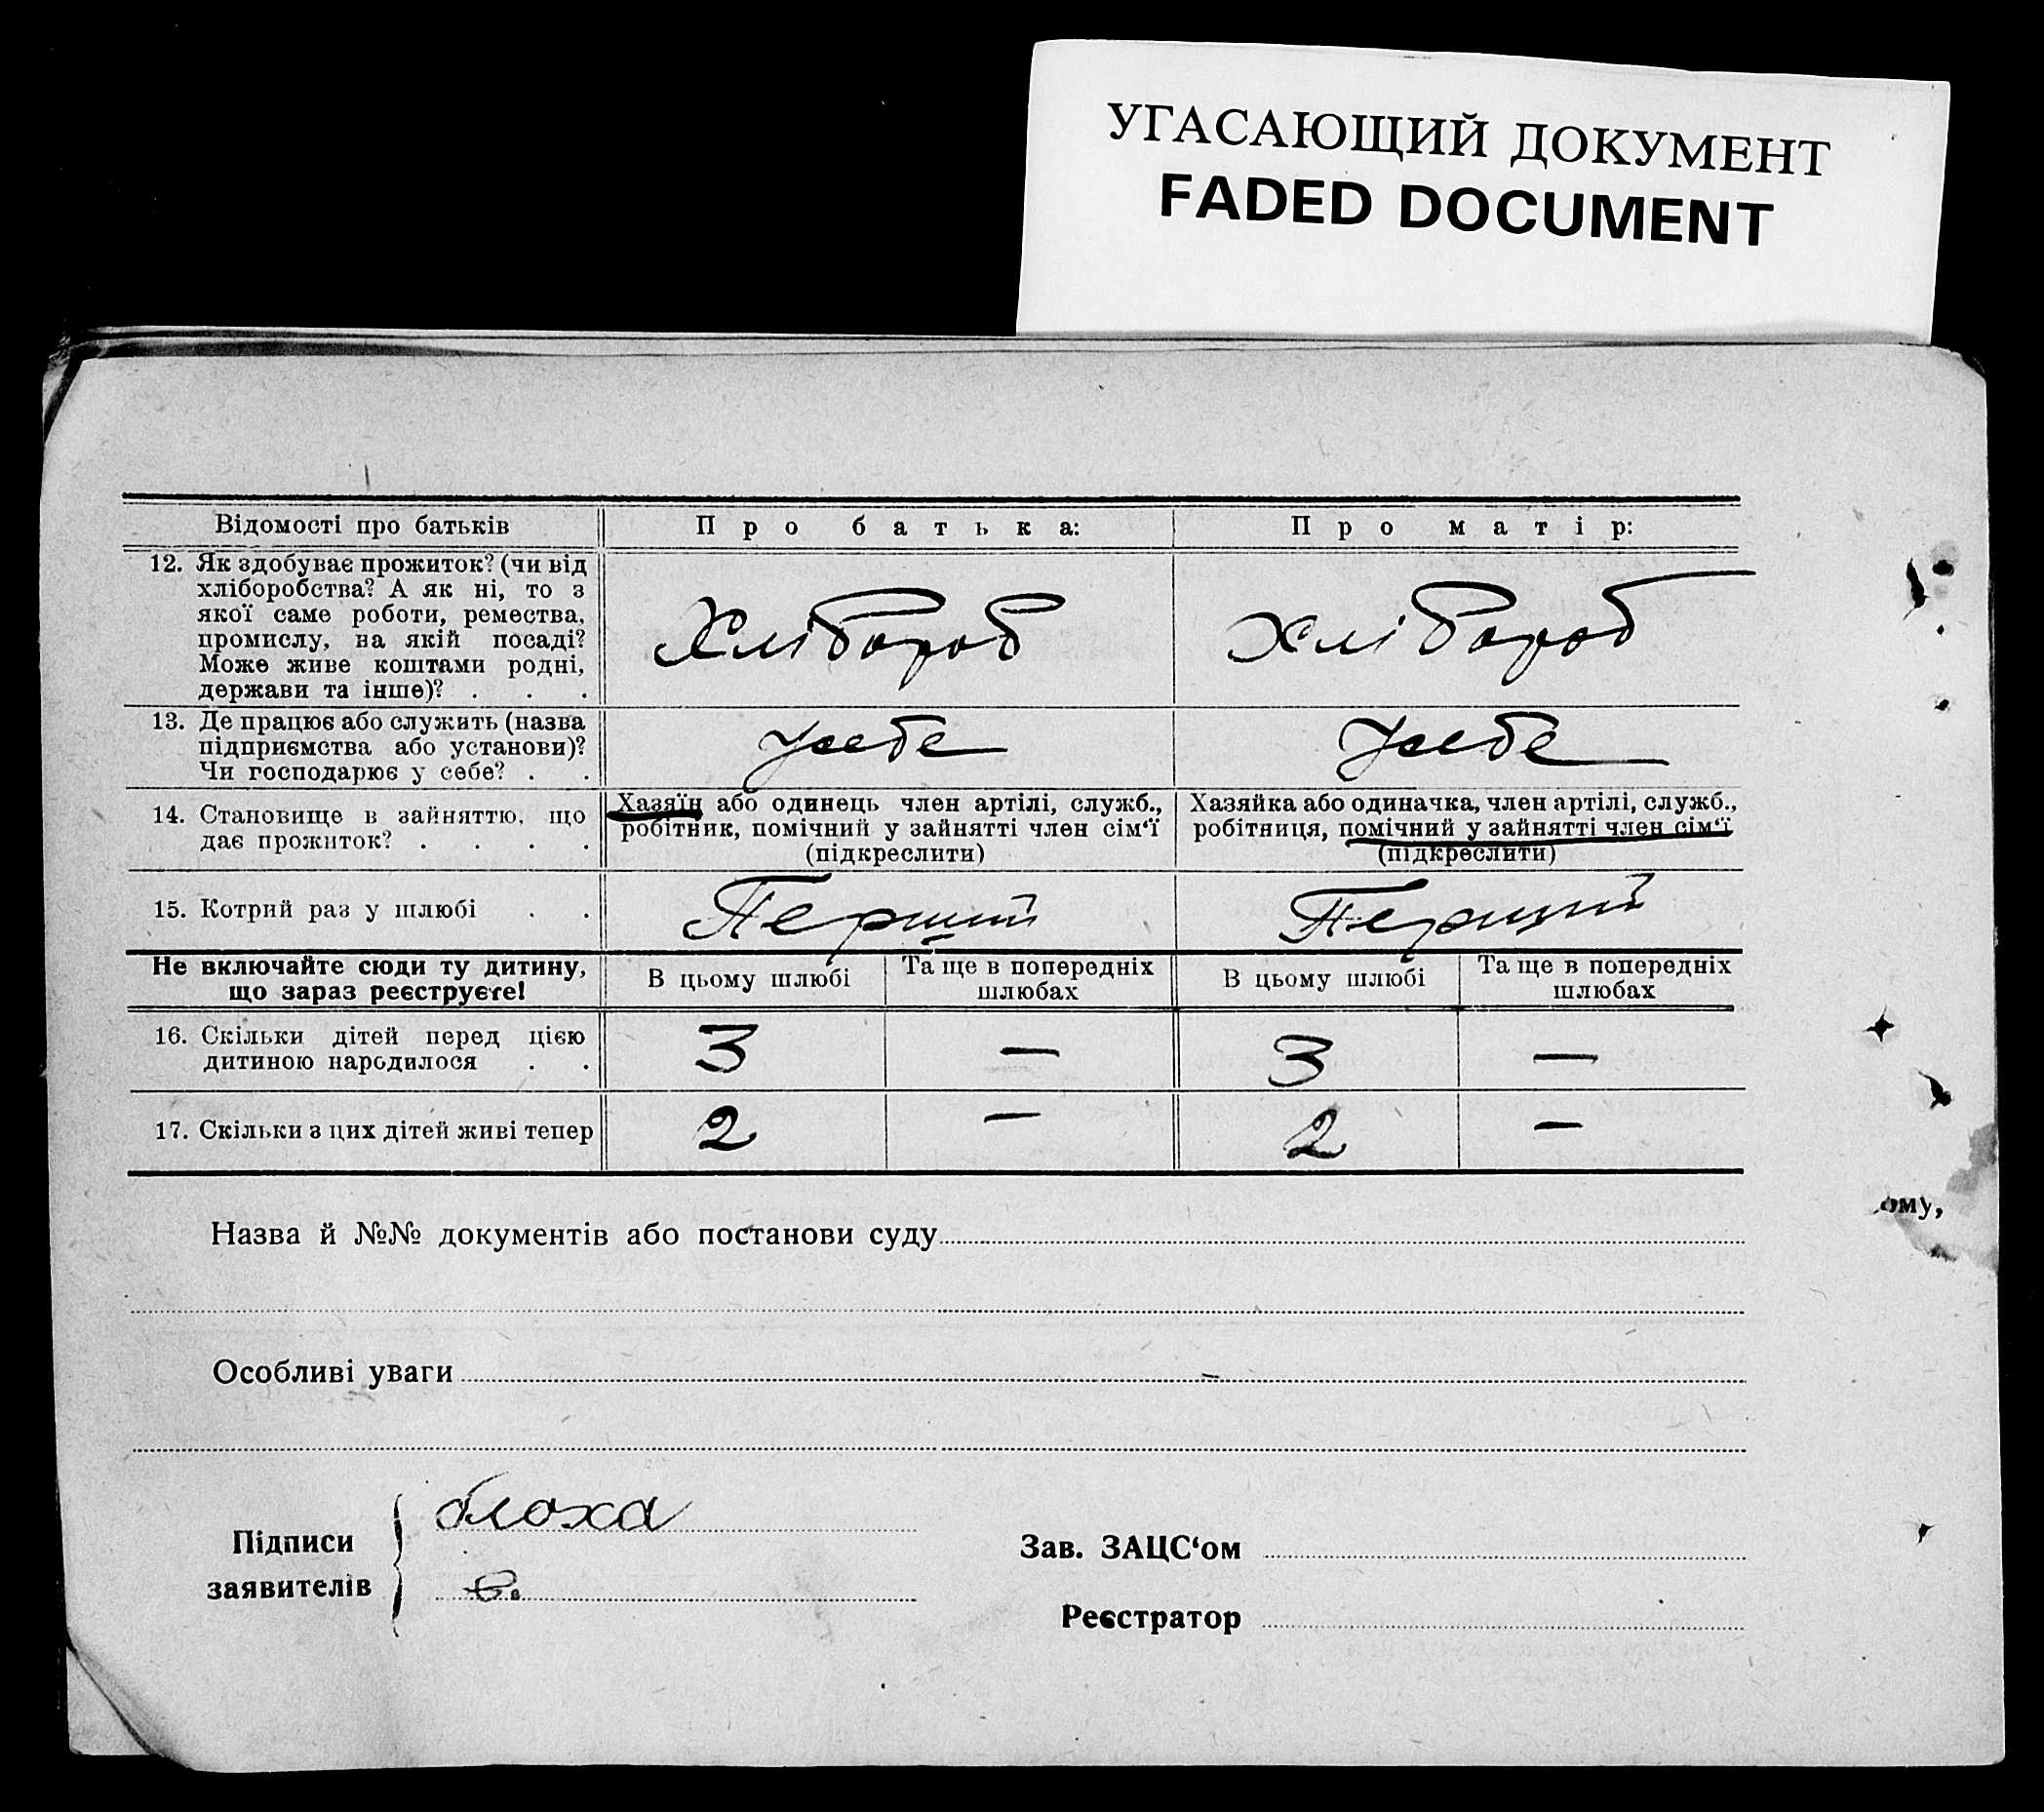 УГАСАЮЩИЙ ДОКУМЕНТ
FADED DOCUMENT
Відомості про батьків
Про батька:
Про матір:
12. Як здобуває прожиток? (чи від
хліборобства? А як ні, то з
якої саме роботи, ремества,
промислу, на якій посаді?
Може живе коштами родні,
держави та інше)? . . .
Хлібороб
Хлібороб
13. Де працює або служить (назва
підприємства або установи)?
Чи господарює у себе? . .
У себе
У себе
14. Становище в зайняттю, що
дає прожиток? . . . .
Хазяїн або одинець член артілі, служб.,
робітник, помічний у зайнятті член сім‘ї
(підкреслити)
Хазяйка або одиначка, член артілі, служб.,
робітниця, помічний у зайнятті член сім‘ї
(підкреслити)
15. Котрий раз у шлюбі . .
Перший
Перший
Не включайте сюди ту дитину,
що зараз реєструєте!
В цьому шлюбі
Та ще в попередніх
шлюбах
В цьому шлюбі
Та ще в попередніх
шлюбах
16. Скільки дітей перед цією
дитиною народилося . .
3
—
3
—
17. Скільки з цих дітей живі тепер
2
—
2
—
ому,
Назва й №№ документів або постанови суду
Особливі уваги
Підписи
заявителів
блоха
Зав. ЗАЦС‘ом
Реєстратор